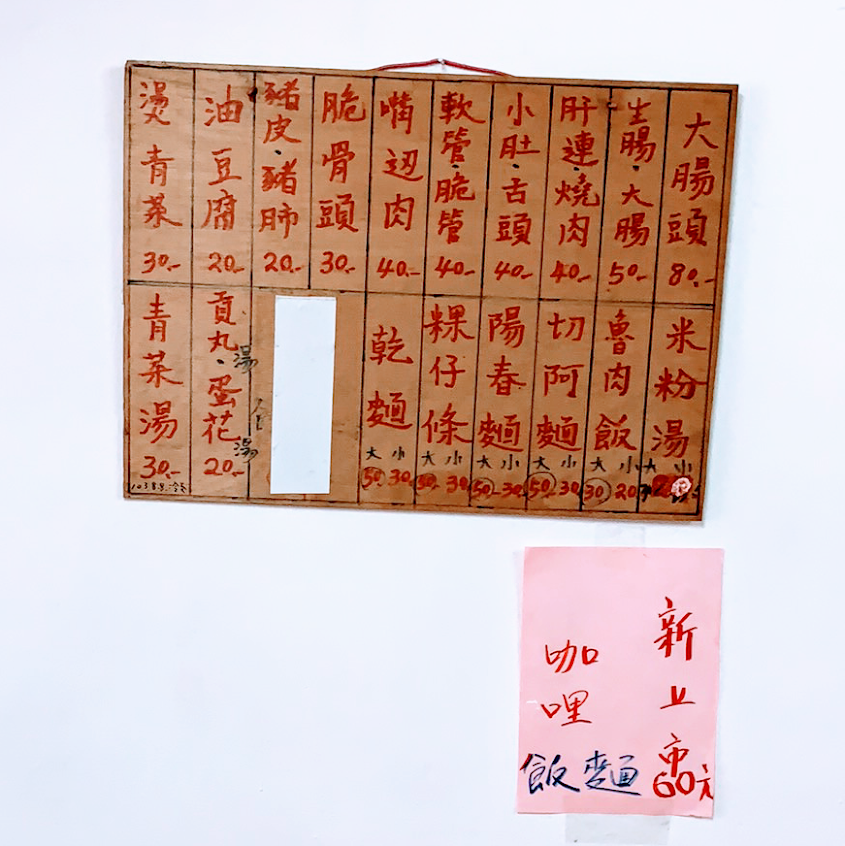 大腸頭 80.-
生腸·大腸 50-
肝連·燒肉 40.-
小肚·舌頭 40.-
軟管·脆管 40.-
嘴边肉 40.-
脆骨頭 30.-
豬皮·豬肺 20.-
油豆腐 20-
燙青菜 30.-
米粉湯 大 小
魯肉飯 大30 小20
切阿麵 大50 小30
陽春麵 大50 小30
粿仔條 大50 小30
乾麵 大50 小30
貢丸湯·蛋花湯 20-
青菜湯 30.-
新上市 60元
咖哩飯麵